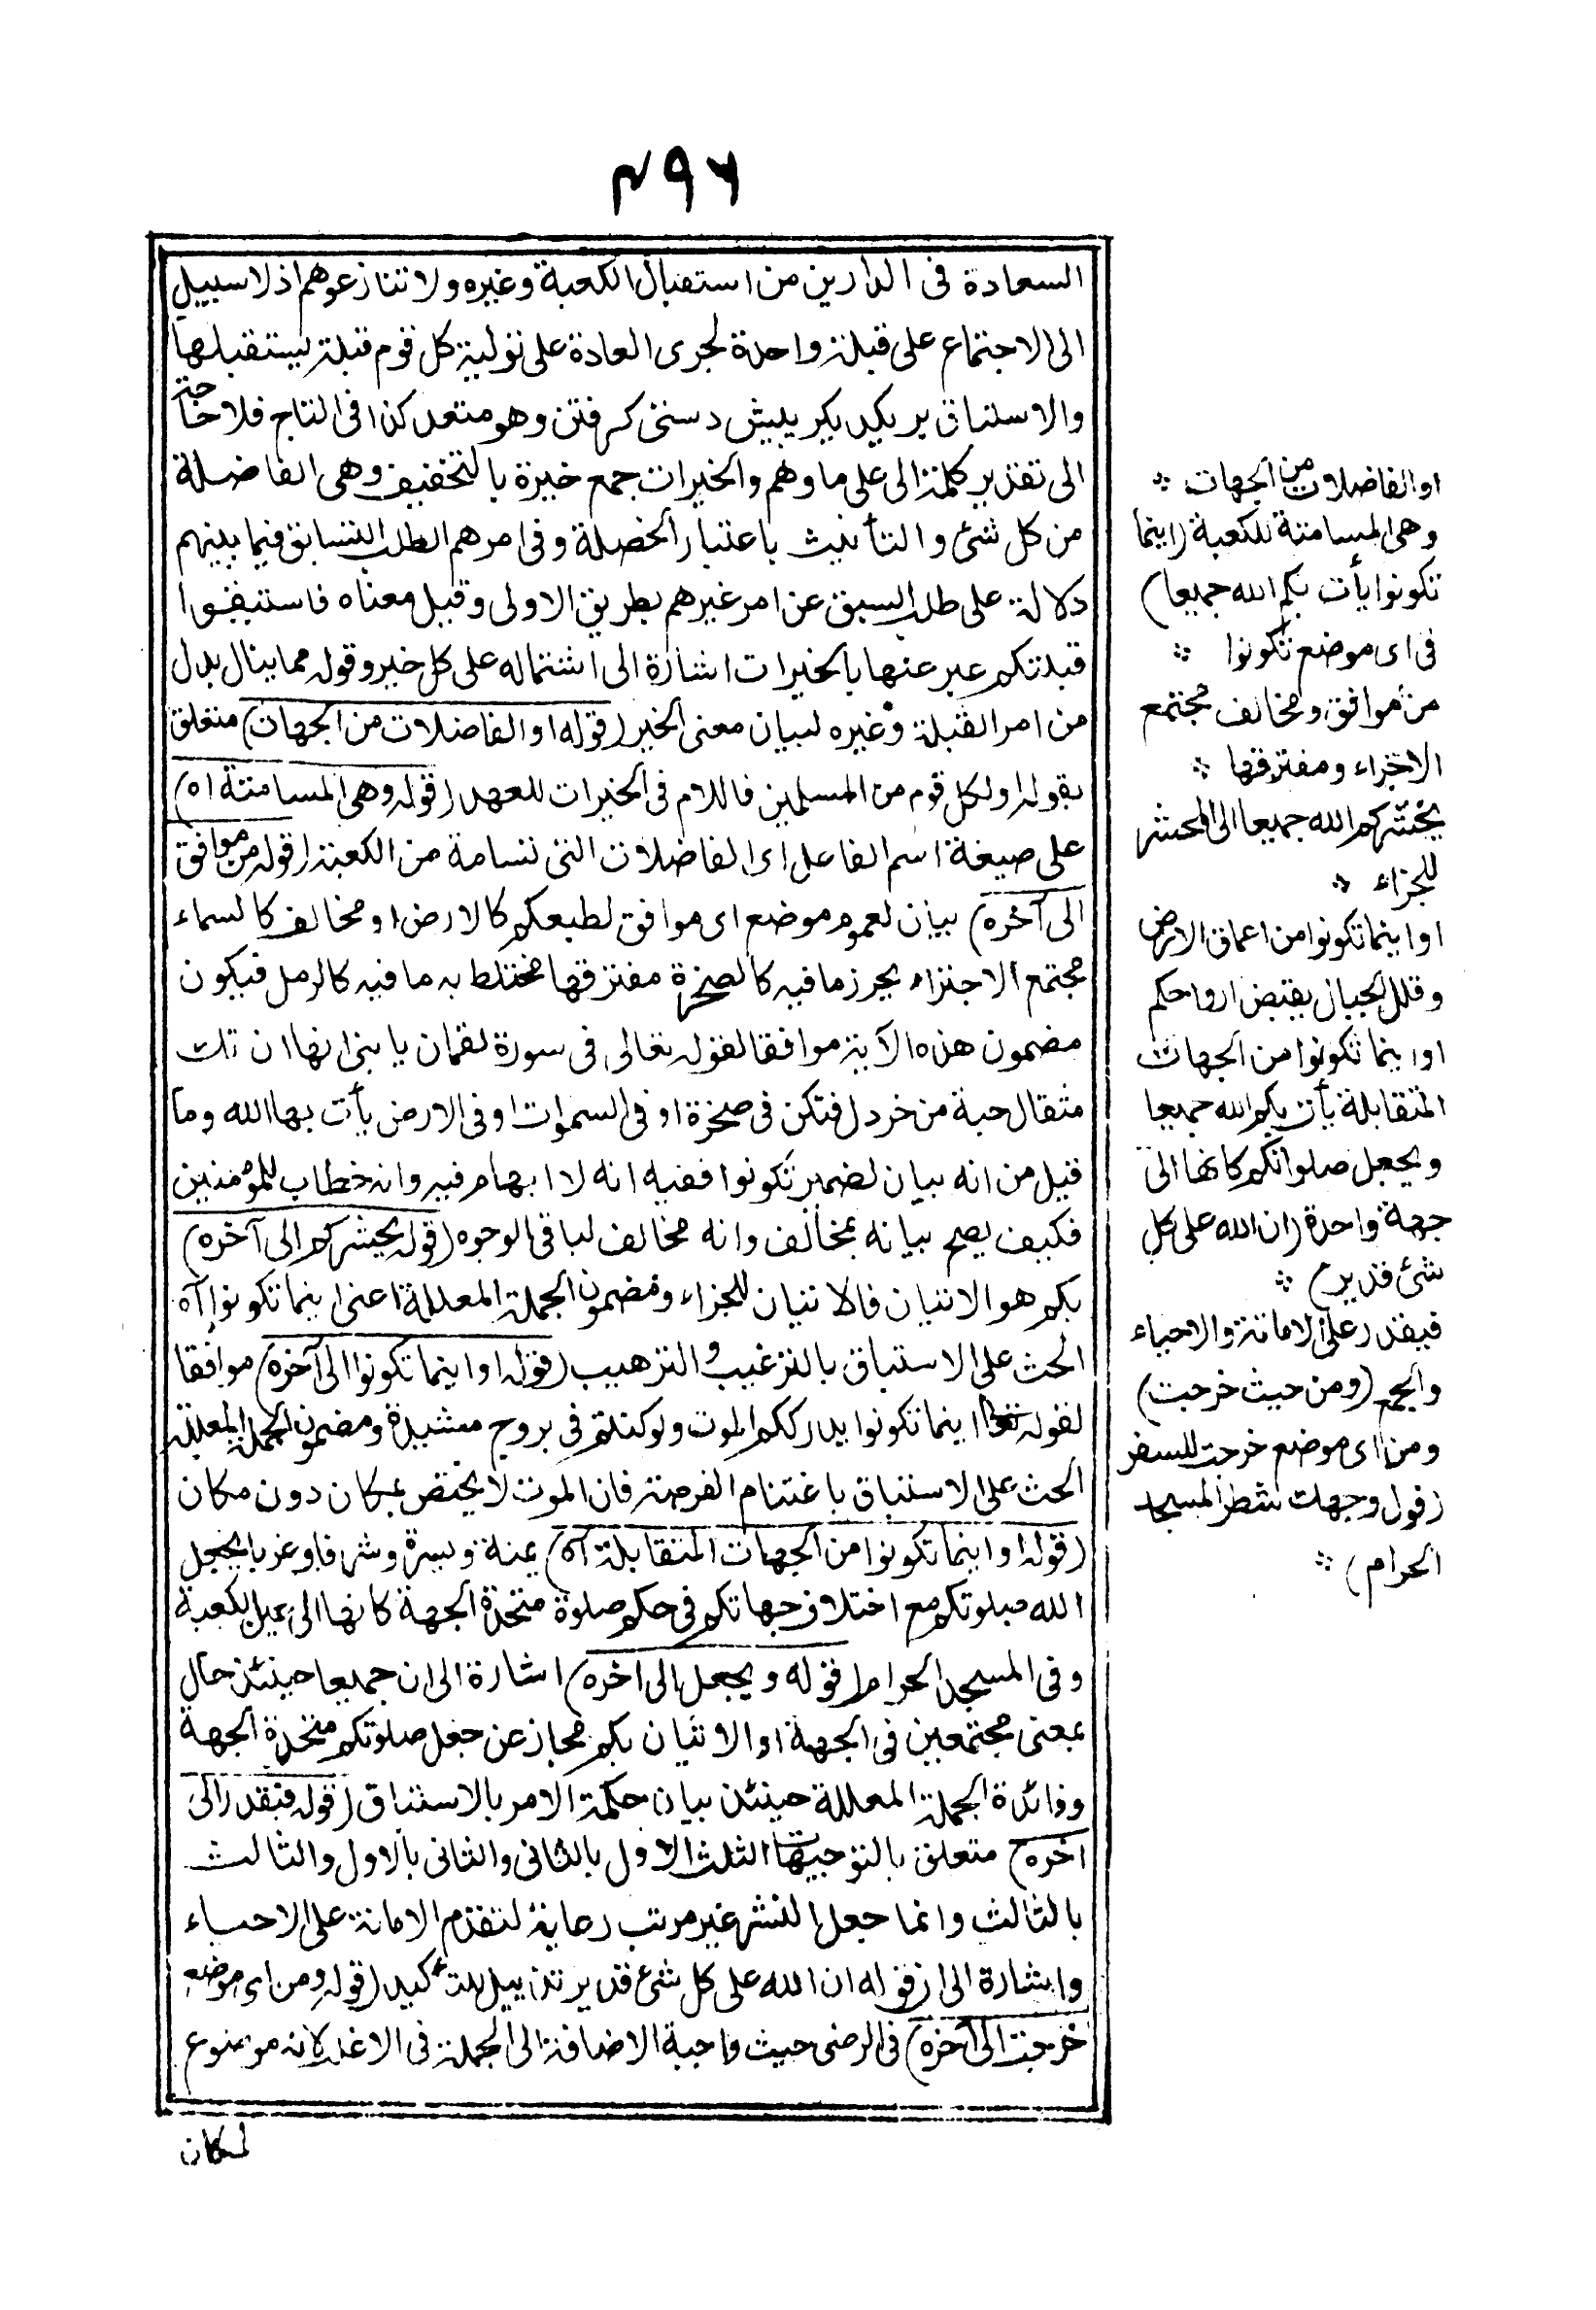 ٤٩٦
السعادة فى الدارين من استقبال الكعبة وغيره ولا تنازعوهم اذ لا سبيل
الى الاجتماع على قبلة واحدة لجرى العادة على تولية كل قوم قبلة يستقبلها
والاستباق بريكديكر پيش دستى كرفتن وهو متعد كذا فى التاج فلا حاجة
الى تقدير كلمة الى على ما وهم والخيرات جمع خيرة بالتخفيف وهى الفاضلة
من كل شئ والتأنيث باعتبار الخصلة وفى امرهم الطلب التسابق فيما بينهم
دلالة على طلب السبق عن امر غيرهم بطريق الاولى وقيل معناه فاستبقوا
قبلتكم عبر عنها بالخيرات اشارة الى اشتماله على كل خير وقوله مما ينال بدل
من امر القبلة وغيره لبيان معنى الخير (قوله او الفاضلات من الجهات) متعلق
بقوله او لكل قوم من المسلمين فاللام فى الخيرات للعهد (قوله وهى المسامتة اه)
على صيغة اسم الفاعل اى الفاضلات التى تسامة من الكعبة (قوله من موافق
الى آخره) بيان لعموم موضع اى موافق لطبعكم كالارض او مخالف كالسماء
مجتمع الاجزاء يحرز ما فيه كالصخرة مفترقها مختلط به ما فيه كالرمل فيكون
مضمون هذه الآية موافقا لقوله تعالى فى سورة لقمان يا بنى انها ان تك
مثقال حبة من خردل فتكن فى صخرة او فى السموات او فى الارض يأت بها الله وما
قيل من انه بيان لضمير تكونوا ففيه انه لا ابهام فيه وانه خطاب للمؤمنين
فكيف يصح بيانه بمخالف وانه مخالف لباقى الوجوه (قوله يحشركم الى آخره)
بكم هو الاتيان فالاتيان للجزاء ومضمون الجملة المعللة اعنى اينما تكونوا آه
الحث على الاستباق بالترغيب والترهيب (قوله او اينما تكونوا الى آخره) موافقا
لقوله تعا اينما تكونوا يدرككم الموت ولو كنتم فى بروج مشيدة ومضمون الجملة المعللة
الحث على الاستباق باغتنام الفرصة فان الموت لا يختص بمكان دون مكان
(قوله او اينما تكونوا من الجهات المتقابلة آه) يمنة ويسرة وشرقا وغربا يجعل
الله صلوتكم مع اختلاف جهاتكم فى حكم صلوة متحدة الجهة كانها الى عين الكعبة
وفى المسجد الحرام (قوله ويجعل الى اخره) اشارة الى ان جميعا حينئذ حال
بمعنى مجتمعين فى الجهة او الاتيان بكم مجاز عن جعل صلوتكم متحدة الجهة
وفائدة الجملة المعللة حينئذ بيان حكمة الامر بالاستباق (قوله فيقدر الى
اخره) متعلق بالتوجيهات الثلث الاول بالثانى والثانى بالاول والثالث
بالثالث وانما جعل النشر غير مرتب رعاية لتقدم الاماتة على الاحياء
واشارة الى ان قوله ان الله على كل شئ قدير تذييل للتأكيد (قوله ومن اى موضع
خرجت الى آخره) فى الرضى حيث واجبة الاضافة الى الجملة فى الاغلب لانه موضوع
لمكان
او الفاضلات من الجهات
وهى المسامتة للكعبة (اينما
تكونوا يأت بكم الله جميعا)
فى اى موضع تكونوا
من موافق ومخالف مجتمع
الاجزاء ومفترقها
يحشركم الله جميعا الى المحشر
للجزاء
او اينما تكونوا من اعماق الارض
وقلل الجبال يقبض ارواحكم
او اينما تكونوا من الجهات
المتقابلة يأت بكم الله جميعا
ويجعل صلواتكم كانها الى
جهة واحدة (ان الله على كل
شئ قدير)
فيقدر على الاماتة والاحياء
والجمع (ومن حيث خرجت)
ومن اى موضع خرجت للسفر
(فول وجهك شطر المسجد
الحرام)